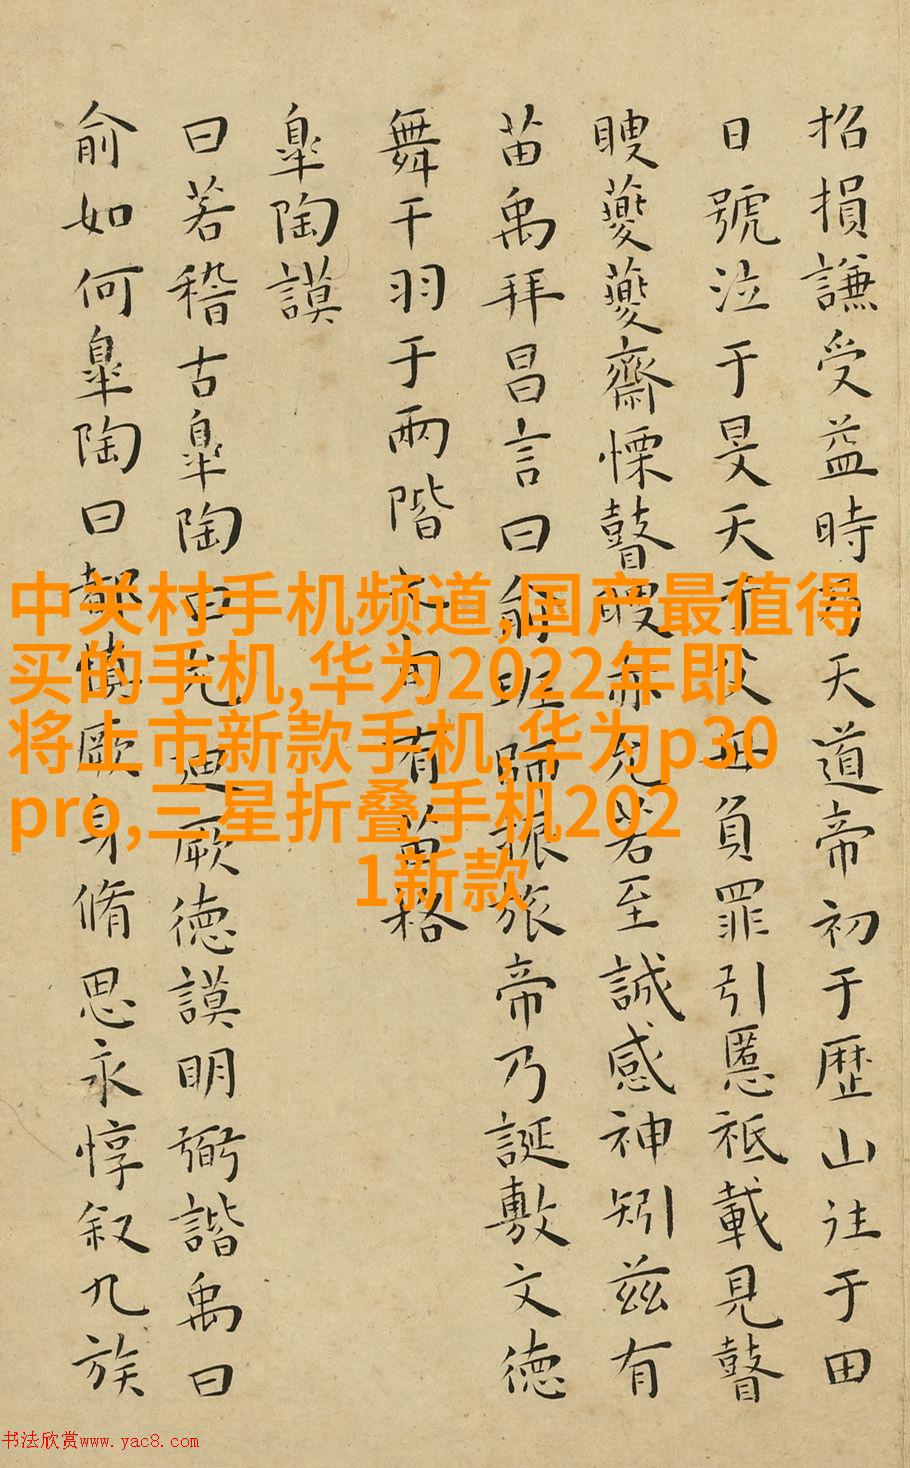 招損謙受益時乃天道帝初于歴山往于田
日號泣于旻天于父母負罪引慝祗載見瞽
瞍夔夔齋慄瞽瞍亦允若至誠感神矧茲有
苗禹拜昌言曰俞班師振旅帝乃誕敷文德
舞干羽于兩階七旬有苗格
皐陶謨
曰若稽古皐陶曰允迪厥德謨明弼諧禹曰
俞如何皐陶曰都慎厥身脩思永惇叙九族
中关村手机频道,国产最值得
买的手机,华为2022年即
将上市新款手机,华为p30
pro,三星折叠手机202
1新款
书法欣赏www.yac8.com